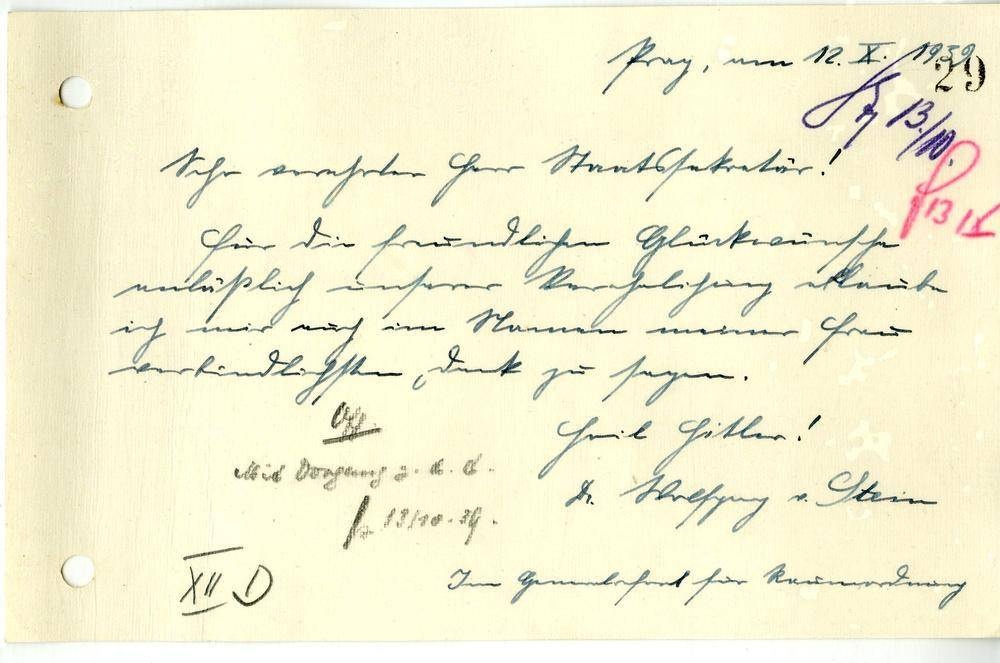 Prag, am 12. X. 1939
29
13/10.
13 X
Sehr verehrter Herr Staatssekretär!
Für die freundlichen Glückwünsche
anläßlich unserer Verehelichung erlaube
ich mir auch im Namen meiner Frau
verbindlichsten Dank zu sagen.
Heil Hitler!
Mit Vorgang z. d. A.
13/10. 39.
Dr. Wolfgang v. Stein
XII D
für Raumordnung